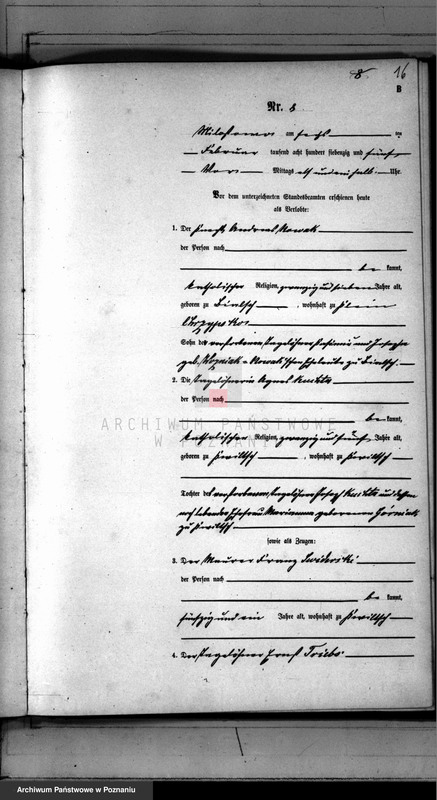 8 16
B
Nr. 8
Milostowo am sechs ten
Februar tausend acht hundert siebenzig und fünf
Vor Mittags elf und ein halb Uhr.
Vor dem unterzeichneten Standesbeamten erschienen heute
als Verlobte:
1. Der Knecht Andreas Nowak
der Person nach
be kannt,
katholischer Religion, zwanzig und sieben Jahre alt,
geboren zu , wohnhaft zu Klein
Chrzypsko
Sohn des verstorbenen Tagelöhners und
geb. Woźniak Nowak'schen Eheleute zu
2. Die Tagelöhnerin Agnes
der Person nach
be kannt,
katholischer Religion, zwanzig und fünf Jahre alt,
geboren zu Kwiltsch , wohnhaft zu Kwiltsch
Tochter des verstorbenen Tagelöhners Joseph und dessen
noch lebenden Ehefrau Marianna geborenen Górniak
zu Kwiltsch
sowie als Zeugen:
3. Der Maurer Franz Swiderski
der Person nach
be kannt,
fünfzig und ein Jahre alt, wohnhaft zu Kwiltsch
4. Der Tagelöhner Ernst
ARCHIWUM PAŃSTWOWE
W POZNANIU
Archiwum Państwowe w Poznaniu